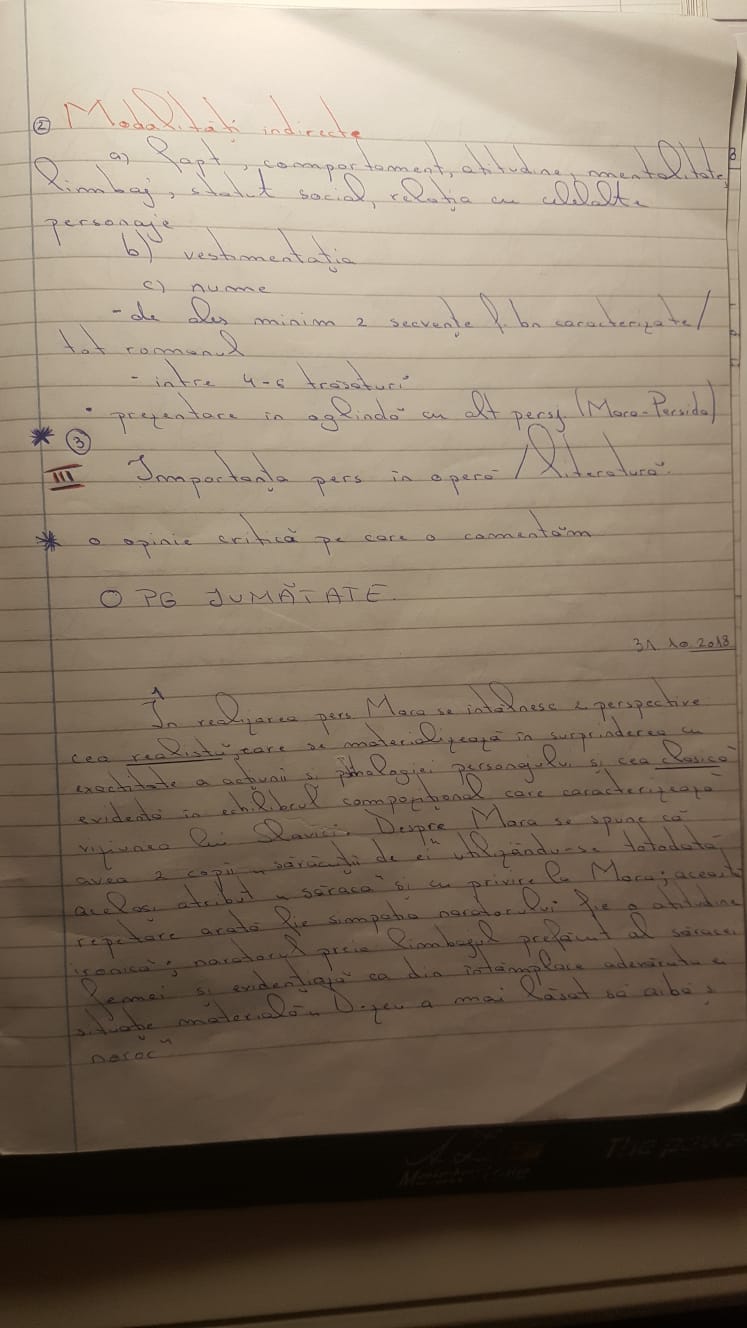 ② Modalități indirecte
a) fapt, comportament, atitudine, mentalitate,
limbaj, statut social, relația cu celelalte
personaje
b) vestimentația
c) nume
- de ales minim 2 secvențe f. bn caracterizate/
tot romanul
- intre 4-6 trăsături
• prezentare in oglindă cu alt persj. (Mara-Persida)
* ③
III Importanța pers in operă / literatură.
* o opinie critică pe care o comentăm
O PG JUMĂTATE.
31 10 2018
În realizarea pers Mara se intâlnesc 2 perspective
cea realistă, care se materializează in surprinderea cu
exactitate a acțiunii și psihologiei personajului și cea clasică
evidentă in echilibrul compozițional care caracterizează
viziunea lui Slavici. Despre Mara se spune că
avea 2 copii „sărăcuții de ei" utilizându-se totodată
același atribut „săraca" și cu privire la Mara; această
repetare arată fie simpatia naratorului fie o atitudine
ironică; naratorul preia limbajul prefăcut al săracei
femei și evidențiază ca din întâmplare adevărata ei
situație materială „D-zeu a mai lăsat să aibă și
noroc"
The power